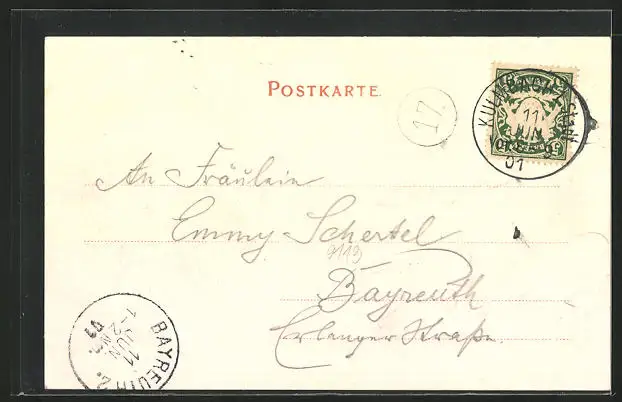 POSTKARTE
17.
KULMBACH Stadt
11
JUN
01
An Fräulein
Emmy Schertel
9113
Bayreuth
Erlanger Straße.
BAYREUTH 2.
11
JUN